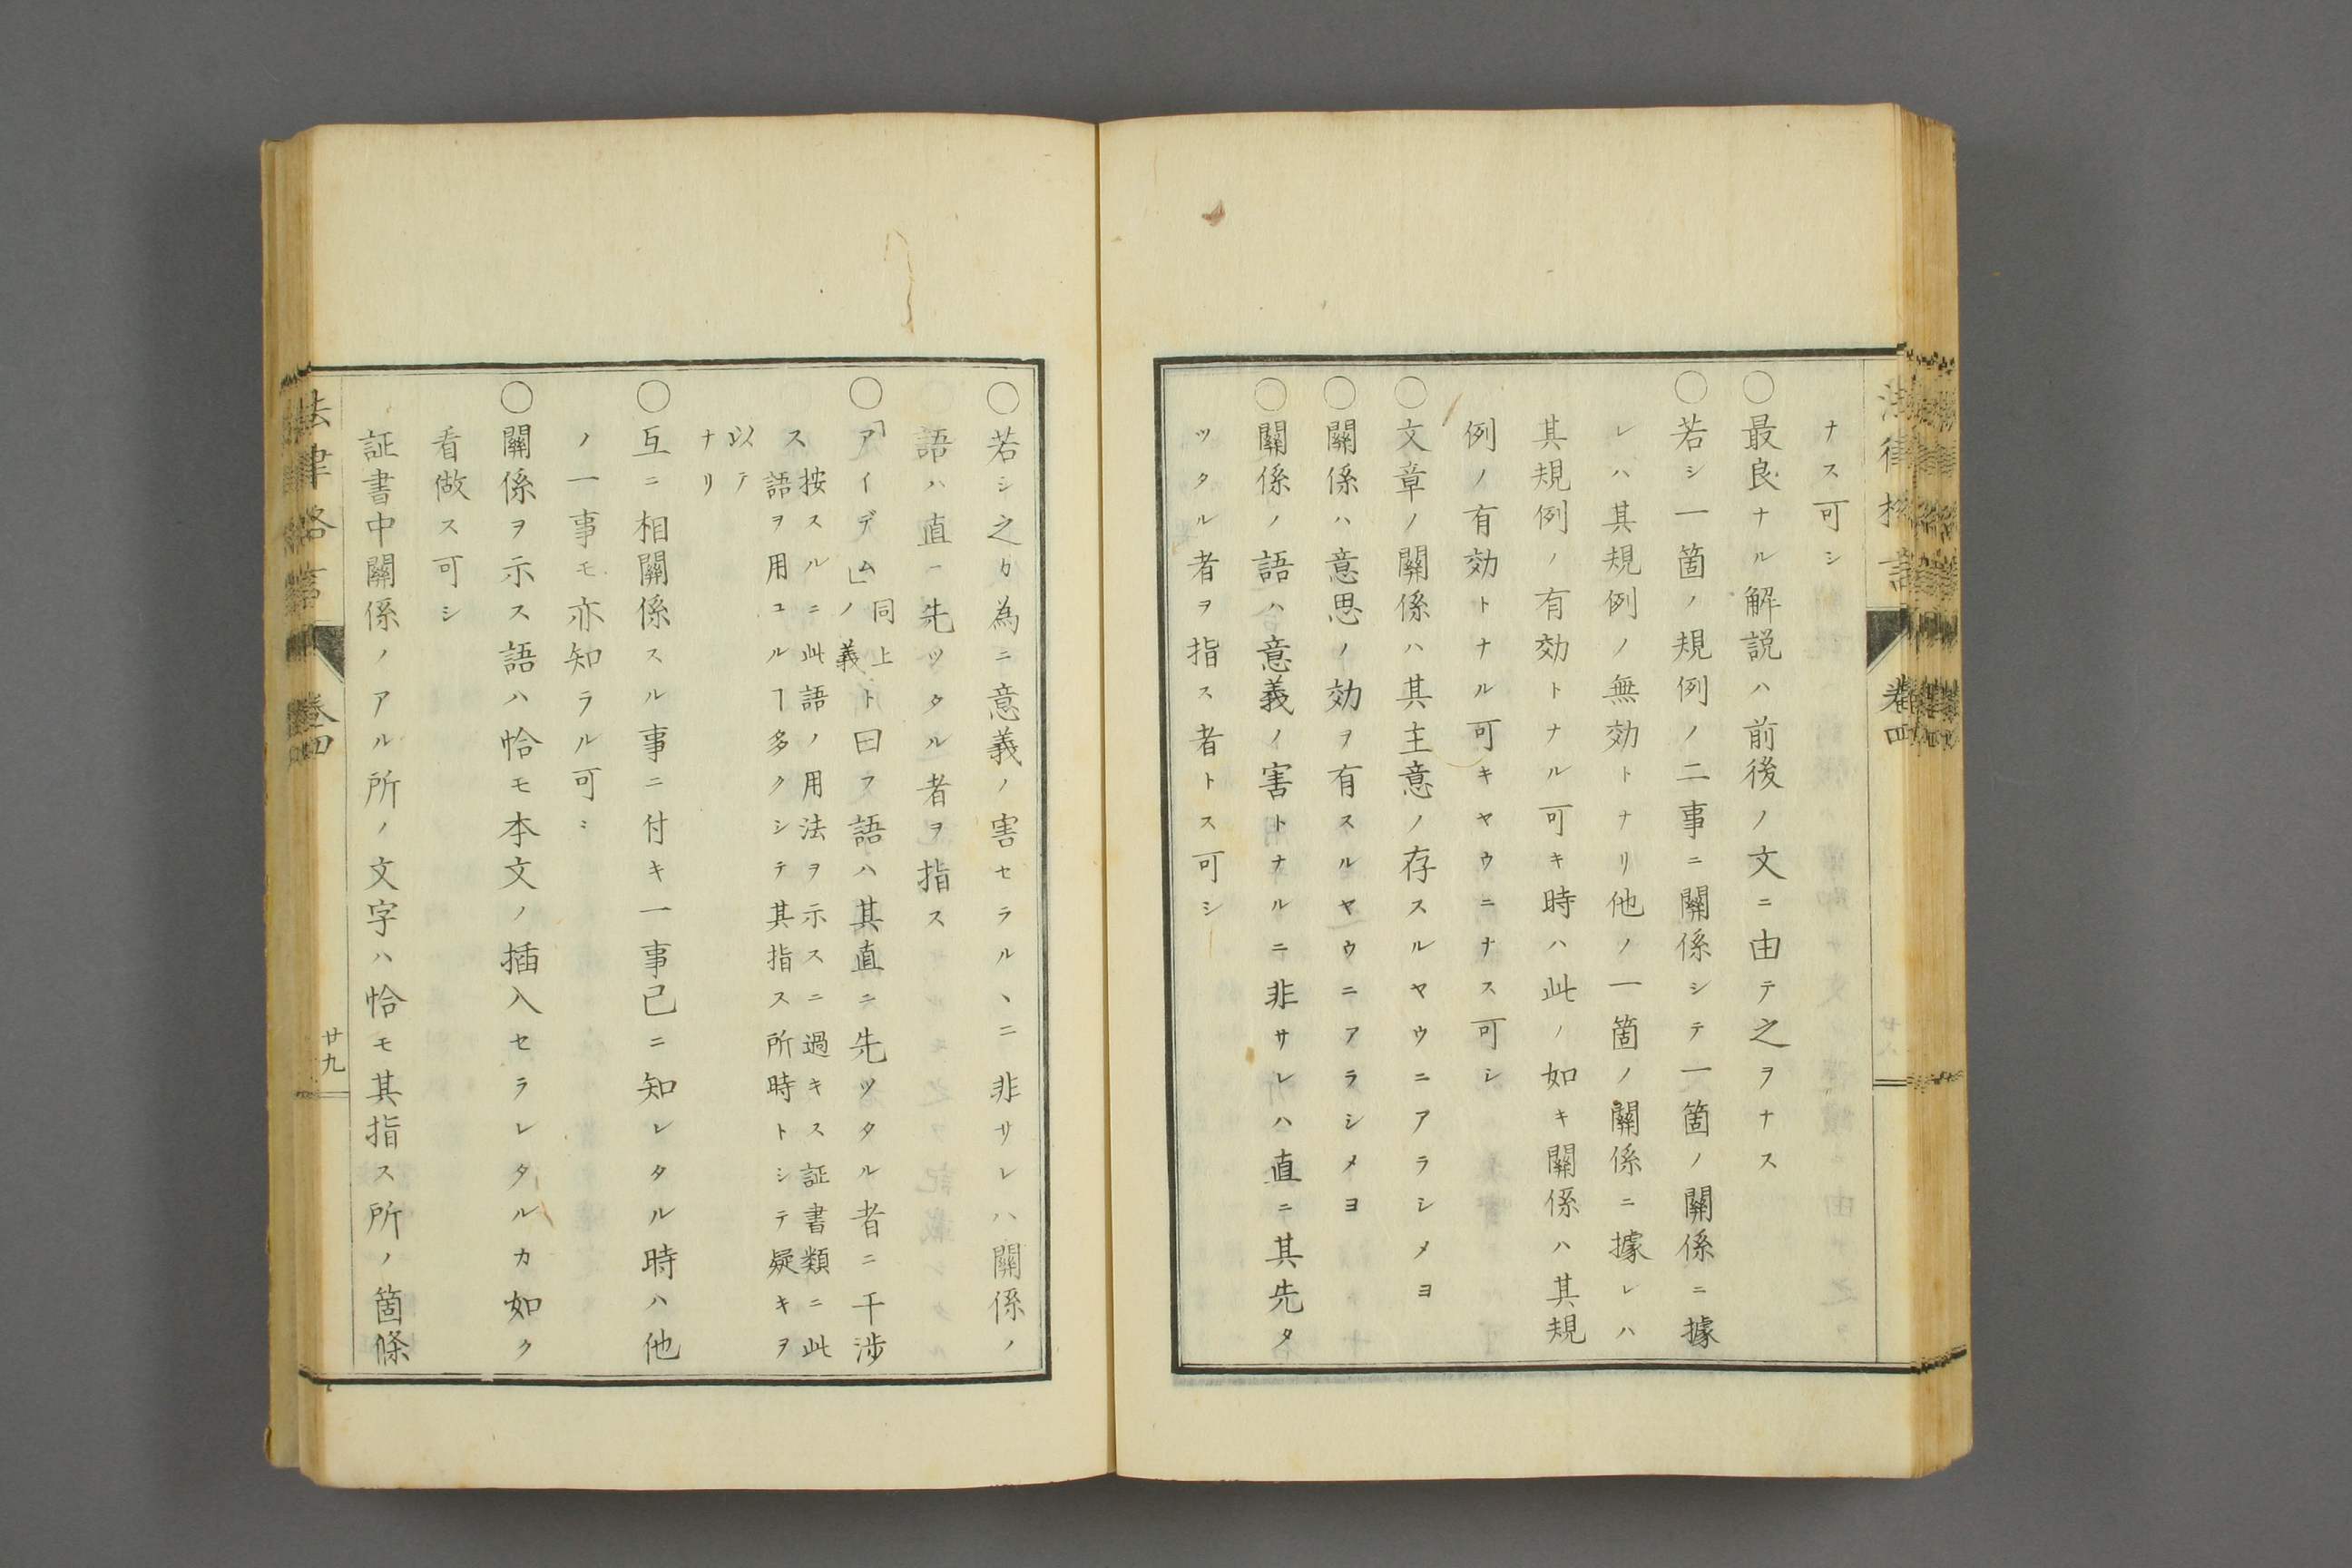 ナス可シ
〇最良ナル解説ハ前後ノ文ニ由テ之ヲナス
〇若シ一箇ノ規例ノ二事ニ關係シテ一箇ノ關係ニ據
レハ其規例ノ無効トナリ他ノ一箇ノ關係ニ據レハ
其規例ノ有効トナル可キ時ハ此ノ如キ關係ハ其規
例ノ有効トナル可キヤウニナス可シ
〇文章ノ關係ハ其主意ノ存スルヤウニアラシメヨ
〇關係ハ意思ノ効ヲ有スルヤウニアラシメヨ
〇關係ノ語ハ意義ノ害トナルニ非サレハ直ニ其先タ
ツタル者ヲ指ス者トス可シ
卷四
〇若シ之カ為ニ意義ノ害セラルヽニ非サレハ關係ノ
語ハ直ニ先ツタル者ヲ指ス
〇「アイデム」同上ノ義ト曰フ語ハ其直ニ先ツタル者ニ干渉
ス按スルニ此語ノ用法ヲ示スニ過キス証書類ニ此
語ヲ用ユルヿ多クシテ其指ス所時トシテ疑キヲ
以テ
ナリ
〇互ニ相關係スル事ニ付キ一事已ニ知レタル時ハ他
ノ一事モ亦知ラル可シ
〇關係ヲ示ス語ハ恰モ本文ノ插入セラレタルカ如ク
看做ス可シ
証書中關係ノアル所ノ文字ハ恰モ其指ス所ノ箇條
法律格言
卷四
廿九